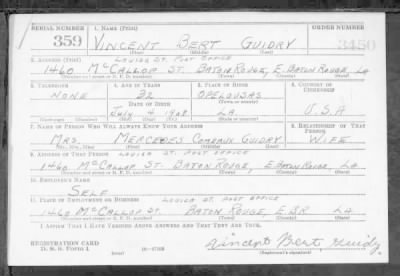 SERIAL NUMBER 1. NAME (Print) ORDER NUMBER
359 VINCENT BERT GUIDRY 3450
(First) (Middle) (Last)
2. ADDRESS (Print) LOUISA ST. POST OFFICE
1460 MCCALLOP ST. BATON ROUGE, E. BATON ROUGE, LA
3. TELEPHONE 4. AGE IN YEARS 5. PLACE OF BIRTH 6. COUNTRY OF CITIZENSHIP
NONE 32 OPELOUSAS
DATE OF BIRTH (Town or county)
JULY 4 1908 LA U.S.A
(Exchange) (Number) (Mo.) (Day) (Yr.) (State or country)
7. NAME OF PERSON WHO WILL ALWAYS KNOW YOUR ADDRESS 8. RELATIONSHIP OF THAT PERSON
MRS. MERCEDES COMEAUX GUIDRY WIFE
(Mr., Mrs., Miss) (First) (Middle) (Last)
9. ADDRESS OF THAT PERSON LOUISA ST. POST OFFICE
1460 MCCALLOP ST. BATON ROUGE, E. BATON ROUGE, LA
10. EMPLOYER'S NAME
SELF
11. PLACE OF EMPLOYMENT OR BUSINESS LOUISA ST. POST OFFICE
1460 MCCALLOP ST. BATON ROUGE, E.B.R LA
I AFFIRM THAT I HAVE VERIFIED ABOVE ANSWERS AND THAT THEY ARE TRUE.
REGISTRATION CARD
D. S. S. Form 1 Vincent Bert Guidry
(over) (Registrant's signature)